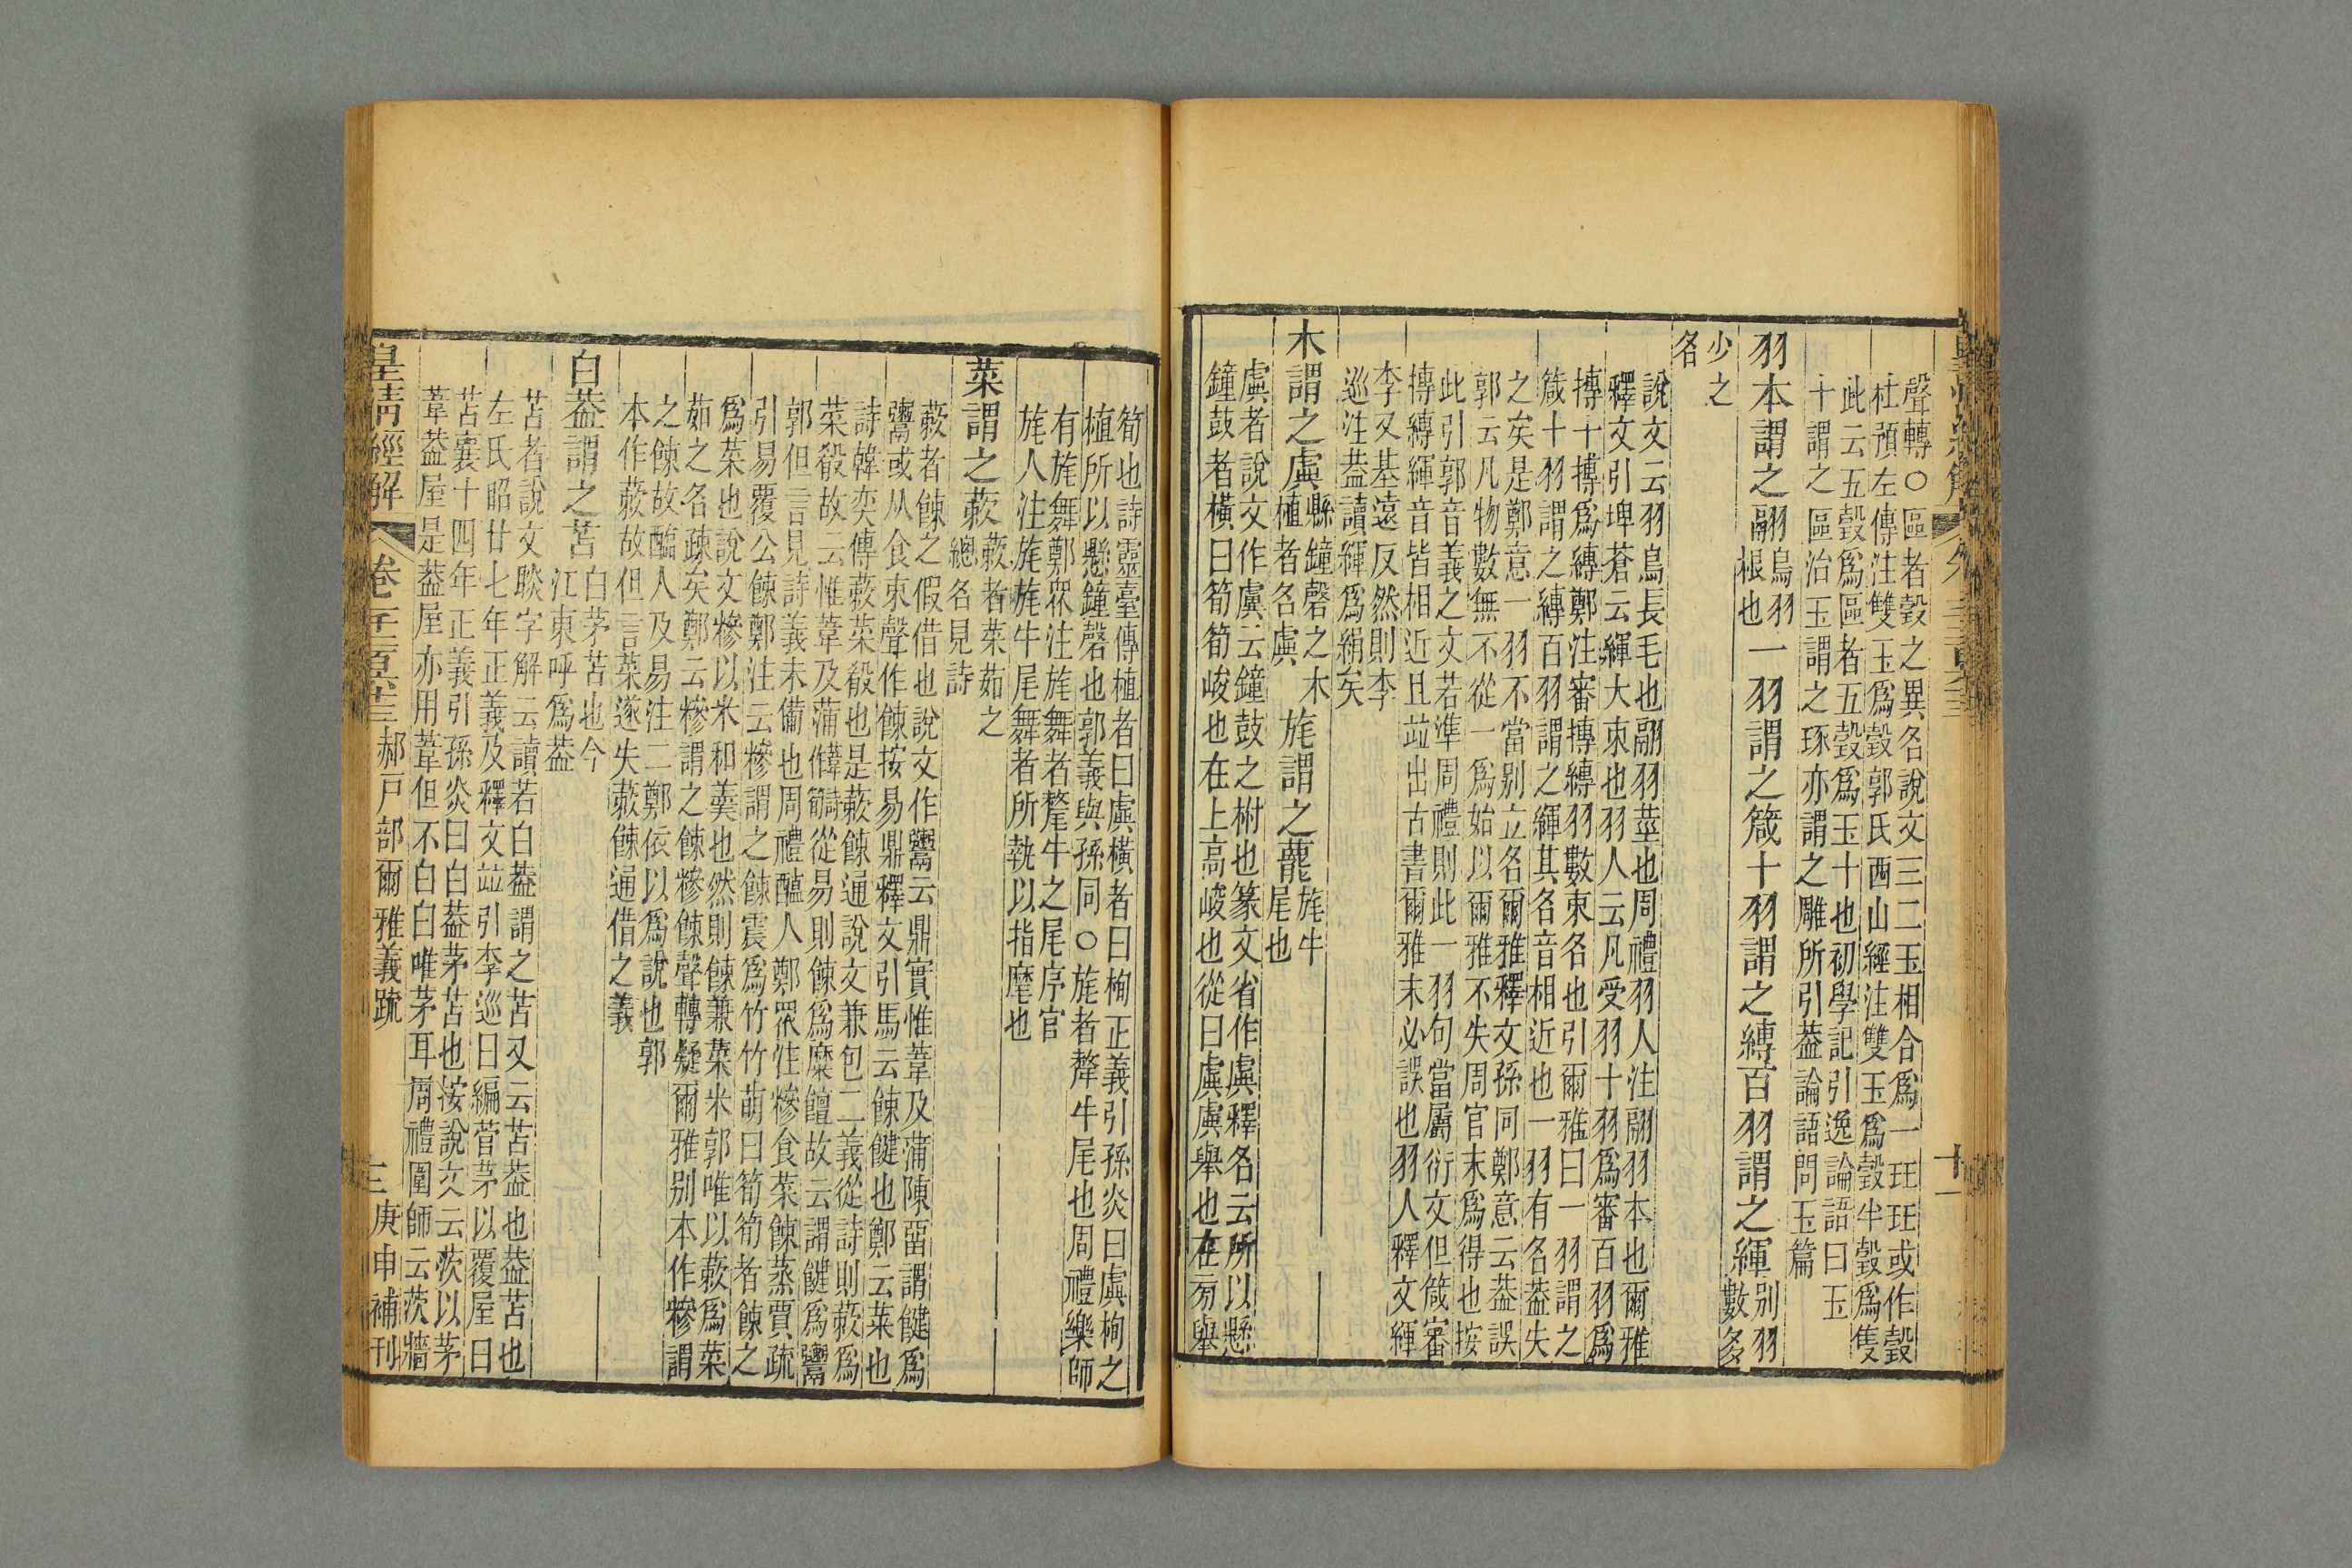 聲轉○區者瑴之異名說文三二玉相合爲一玨玨或作瑴
杜預左傳注雙玉爲瑴郭氏西山經注雙玉爲瑴半瑴爲隻
此云五瑴爲區者五瑴爲玉十也初學記引逸論語曰玉
十謂之區治玉謂之琢亦謂之雕所引葢論語問玉篇
羽本謂之翮鳥羽根也一羽謂之箴十羽謂之縳百羽謂之緷別羽數多
少之
名
說文云羽鳥長毛也翮羽莖也周禮羽人注翮羽本也爾雅
釋文引埤蒼云緷大束也羽人云凡受羽十羽爲審百羽爲
摶十摶爲縳鄭注審摶縳羽數束名也引爾雅曰一羽謂之
箴十羽謂之縳百羽謂之緷其名音相近也一羽有名葢失
之矣是鄭意一羽不當別立名爾雅釋文孫同鄭意云葢誤
郭云凡物數無不從一爲始以爾雅不失周官末爲得也按
此引郭音義之文若準周禮則此一羽句當屬衍文但箴審
摶縳緷音皆相近且竝出古書爾雅末必誤也羽人釋文緷
李又基遠反然則李
巡注葢讀緷爲絹矣
木謂之虡縣鐘磬之木植者名虡旄謂之藣旄牛尾也
虡者說文作虡云鐘鼓之柎也篆文省作虡釋名云所以懸
鐘鼓者橫曰筍筍峻也在上高峻也從曰虡虡舉也在旁舉
筍也詩靈臺傳植者曰虡橫者曰栒正義引孫炎曰虡栒之
植所以懸鐘磬也郭義與孫同○旄者犛牛尾也周禮樂師
有旄舞鄭眾注旄舞者氂牛之尾序官
旄人注旄旄牛尾舞者所執以指麾也
菜謂之蔌蔌者菜茹之總名見詩
蔌者餗之假借也說文作鬻云鼎實惟葦及蒲陳畱謂饘爲
鬻或从食束聲作餗按易鼎釋文引馬云餗饘也鄭云菜也
詩韓奕傳蔌菜殽也是蔌餗通說文兼包二義從詩則蔌爲
菜殽故云惟葦及蒲從易則餗爲糜饘故云謂饘爲鬻
郭但言見詩義未備也周禮醢人鄭眾注糝食菜餗蒸賈疏
引易覆公餗鄭注云糝謂之餗震爲竹竹萌曰筍筍者餗之
爲菜也說文糝以米和羹也然則餗兼菜米郭唯以蔌爲菜
茹之名疎矣鄭云糝謂之餗糝餗聲轉疑爾雅別本作糝謂
之餗故醢人及易注二鄭依以爲說也郭
本作蔌故但言菜遂失蔌餗通借之義
白葢謂之苫白茅苫也今江東呼爲葢
苫者說文睒字解云讀若白葢謂之苫又云苫葢也葢苫也
左氏昭廿七年正義及釋文竝引李巡曰編菅茅以覆屋曰
苫襄十四年正義引孫炎曰白葢茅苫也按說文云茨以茅
葦葢屋是葢屋亦用葦但不白白唯茅耳周禮圉師云茨牆
皇清經解 郝戶部爾雅義疏 庚申補刊